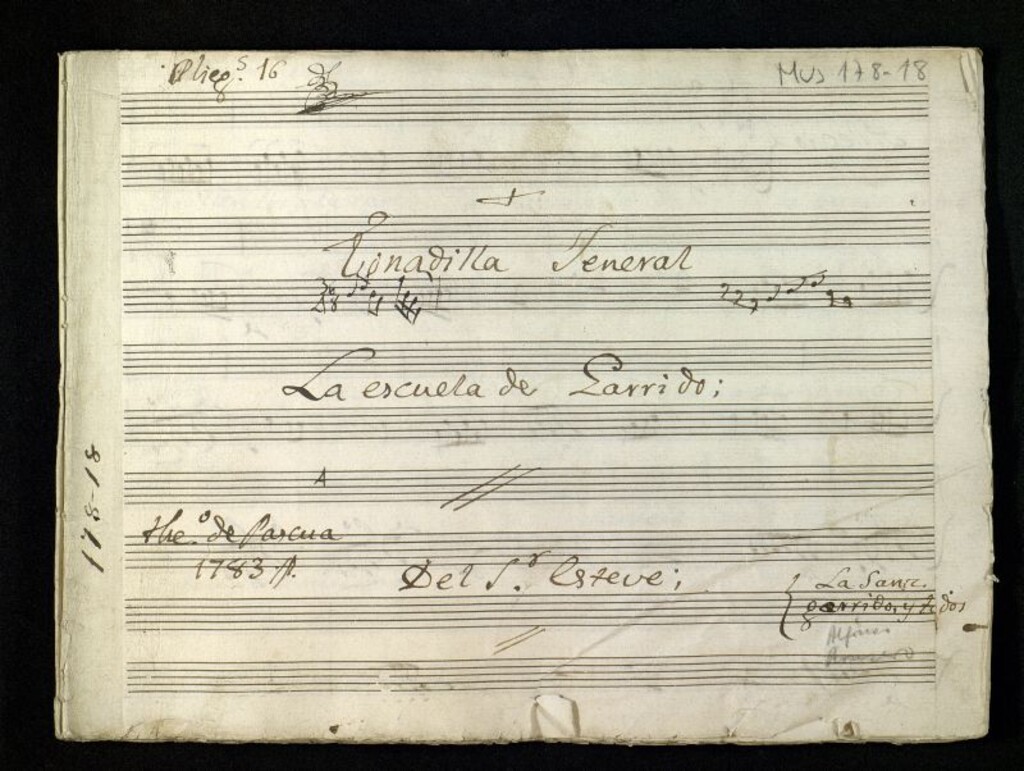 Plieg.s 16
Mus 178-18
Tonadilla Jeneral
La escuela de Garrido;
A
the.o de Pascua
1783
Del S.r Esteve;
178-18
La Sanz.
garrido, y todos